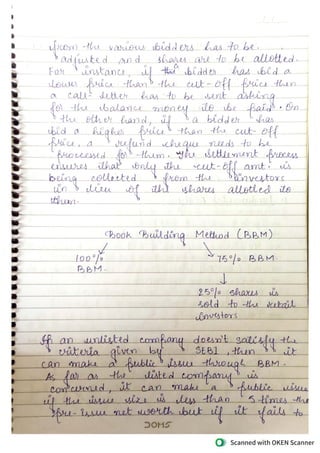 from the various bidders has to be
adjusted and shares are to be allotted.
For instance, if the bidder has bid a
lower price than the cut-off price then
a call letter has to be sent asking
for the balance money to be paid. On
the other hand, if a bidder has
bid a higher price than the cut-off
price, a refund cheque needs to be
processed for them. The settlement process
ensures that only the cut-off amt. is
being collected from the investors
in lieu of the shares allotted to
them.
Book Building Method (BBM)
100% 75% BBM
BBM.
25% shares is
sold to the retail
investors
If an unlisted company doesn't satisfy the
criteria given by SEBI, then it
can make a public issue through BBM.
As far as the listed company is
concerned, it can make a public issue
if the issue size is less than 5 times the
pre-issue net worth but if it fails to
DOMS
Scanned with OKEN Scanner